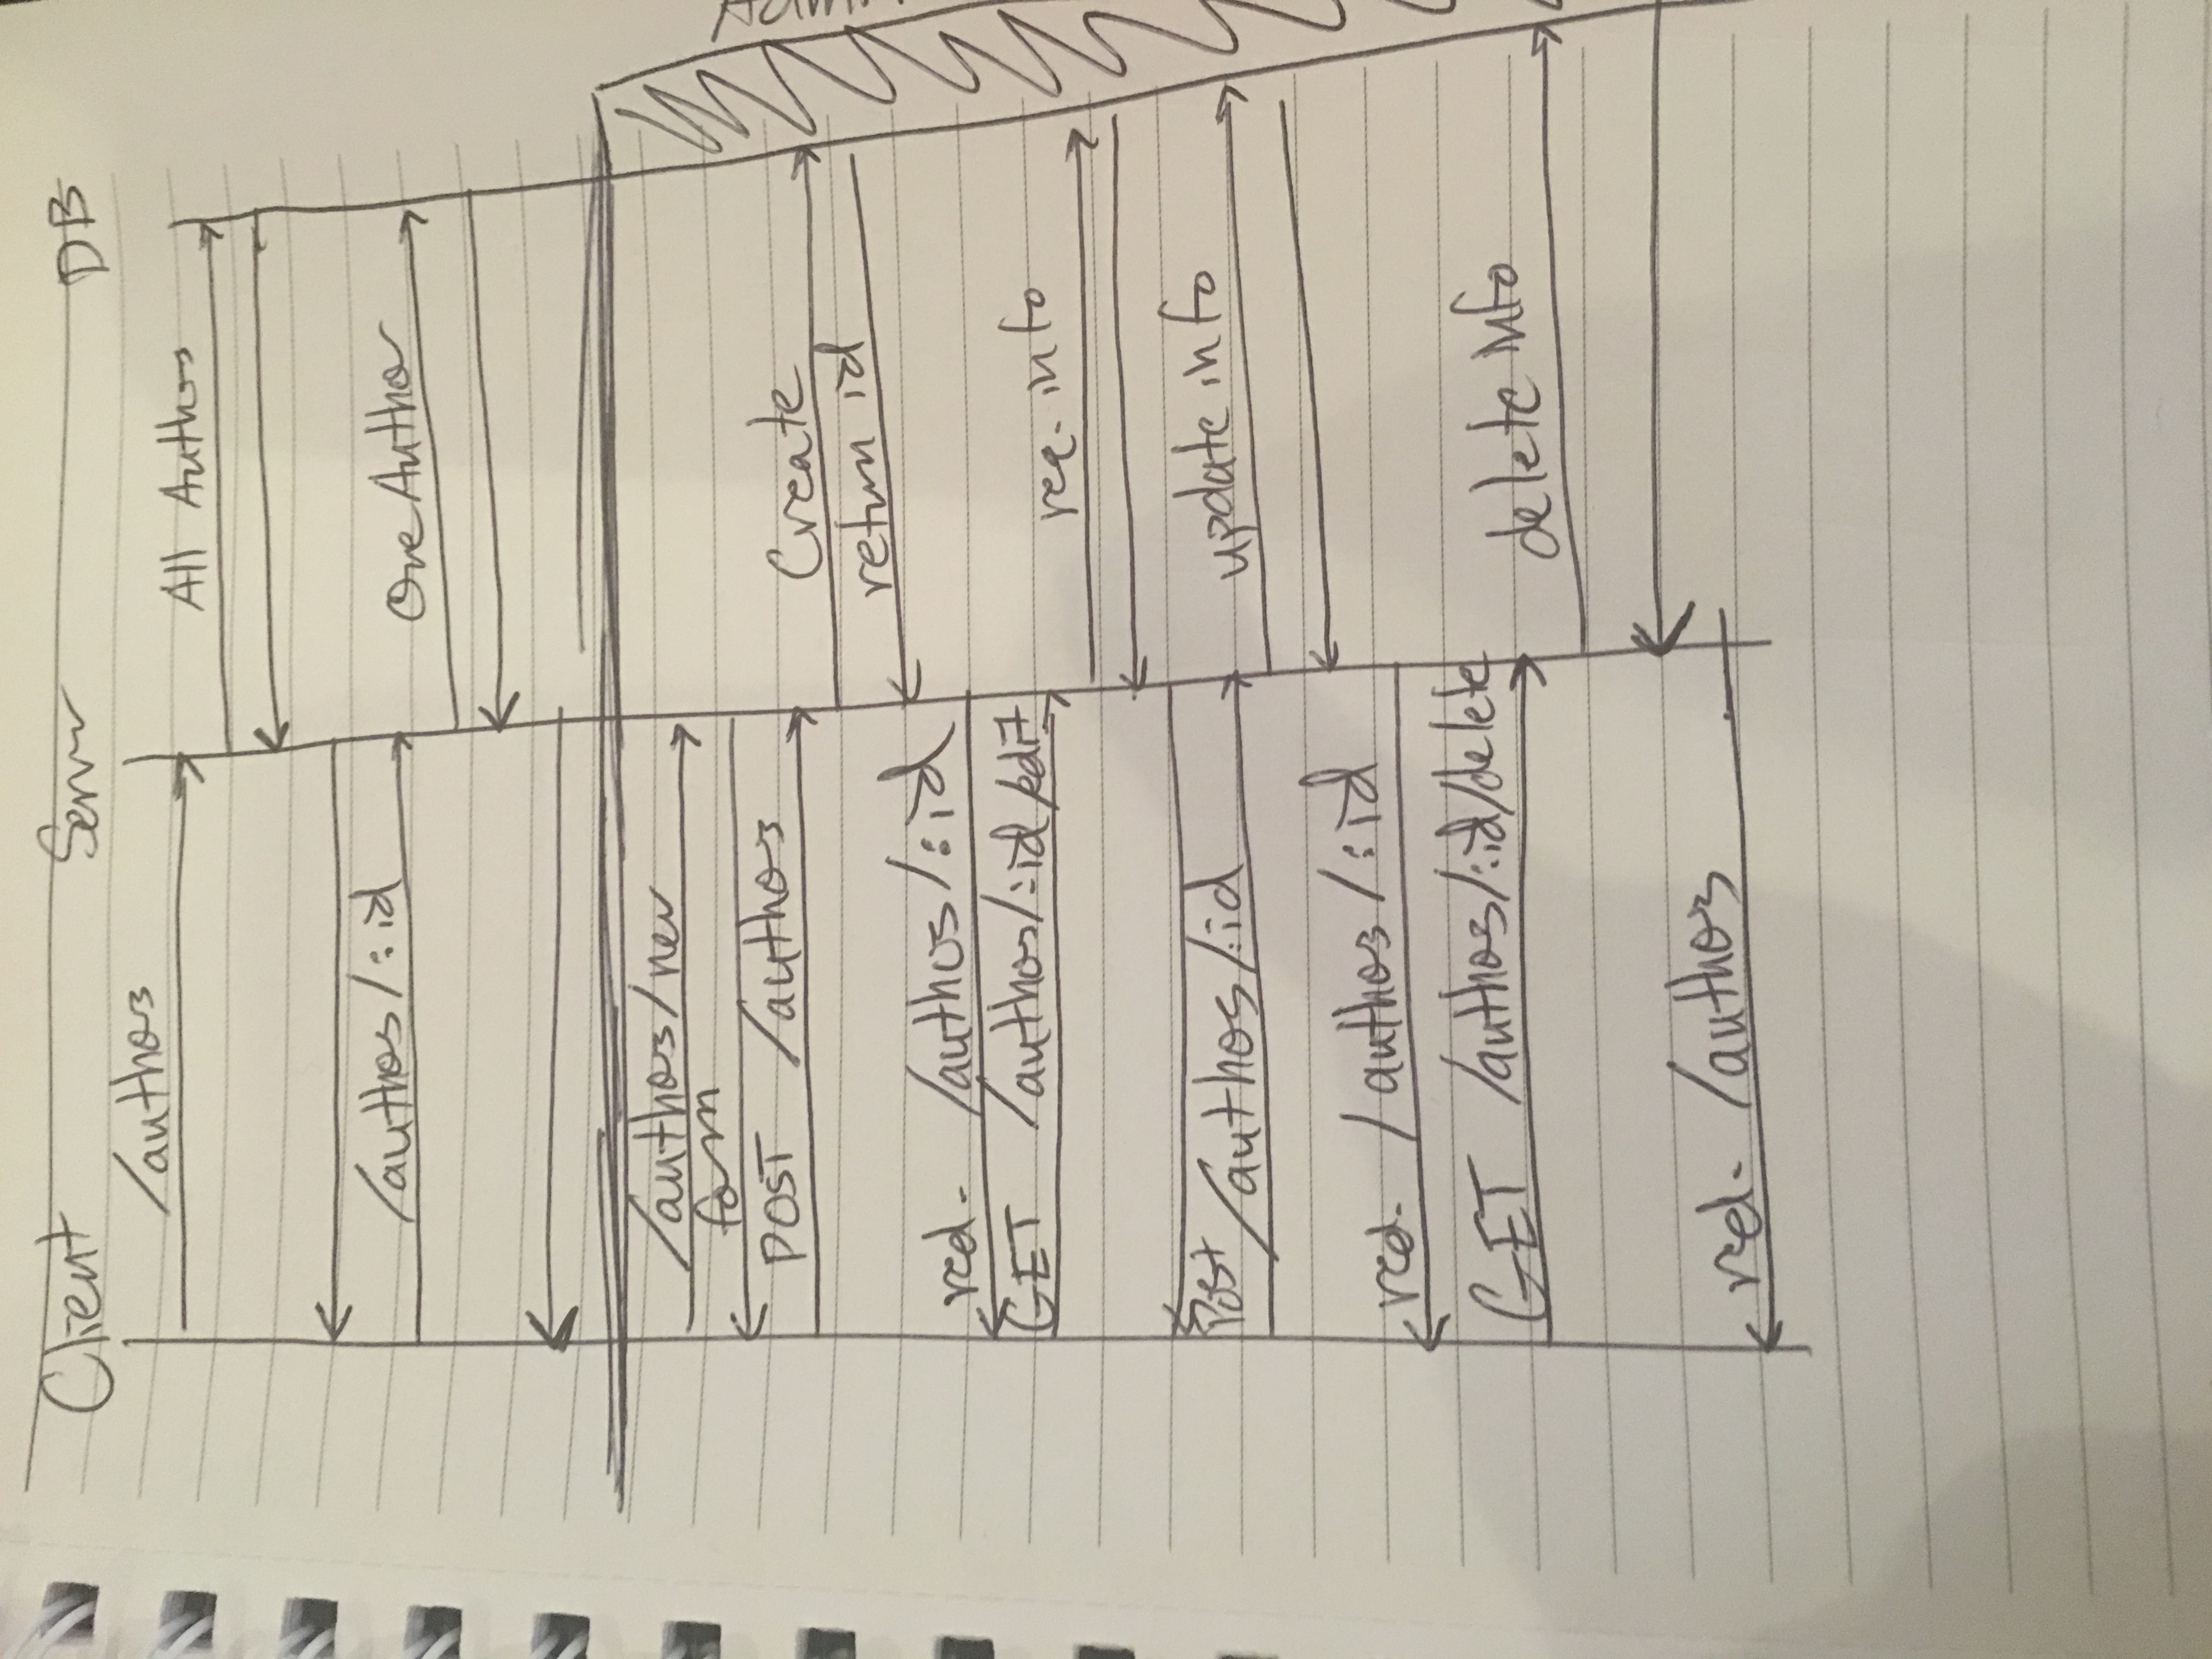 Client Server DB
/authors
All Authors
/authors/:id
One Author
/authors/new
form
POST /authors
Create
return id
red. /authors/:id
GET /authors/:id/edit
req. info
Post /authors/:id
update info
red. /authors/:id
GET /authors/:id/delete
delete info
red. /authors